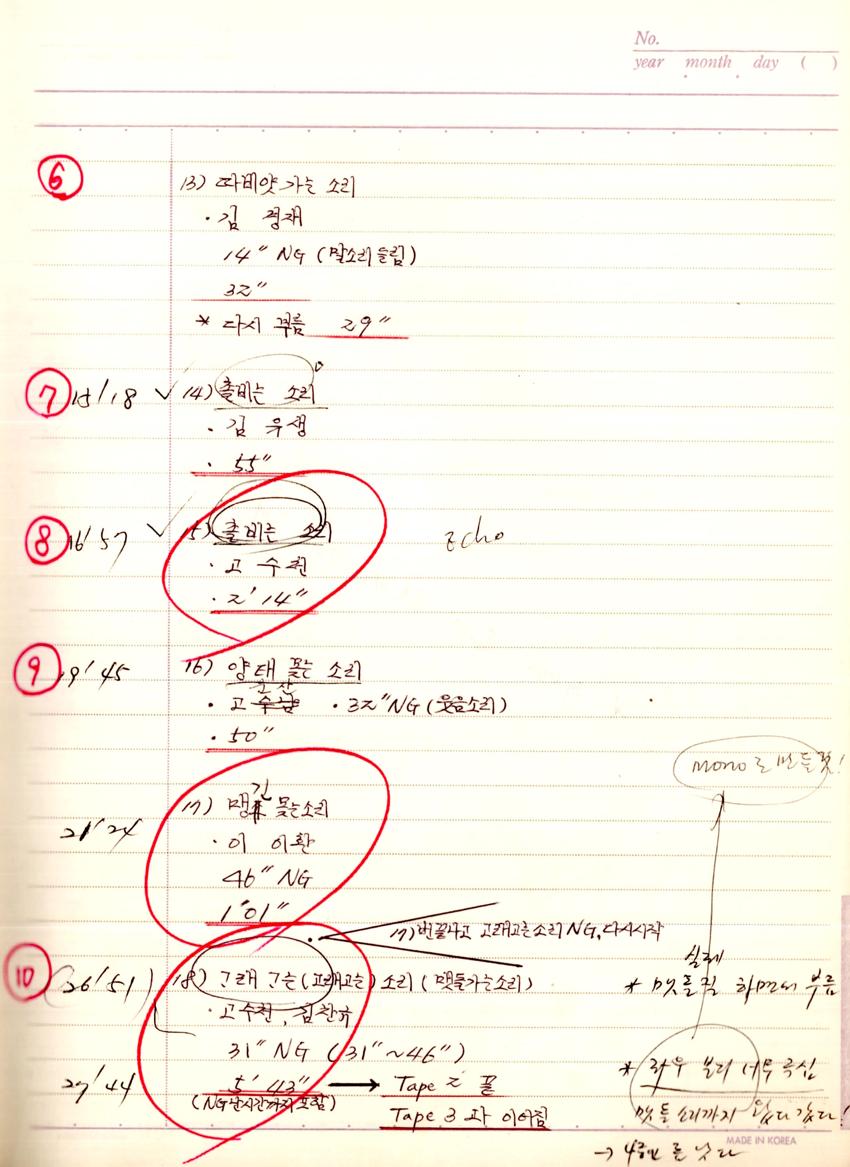 No.
year month day ( )
⑥ 13) 따비왓 가는 소리
· 김 경재
14" NG (말소리 들림)
32"
* 다시 부름 29"
⑦ 15/18 ✓ 14) 촐비는 소리
· 김 우생
· 55"
⑧ 16'57 ✓ 15) 촐비는 소리 Echo
· 고 수천
· 2'14"
⑨ 19'45 16) 양태 뭊는 소리
· 고 · 32" NG (웃음소리)
· 50"
mono로 만들 것!
21'24 17) 맹긴 뭊는소리
· 이 이환
46" NG
1'01"
17)번끝나고 고래고는소리 NG, 다시시작
⑩ (26'51) 18) 그래 그는 (고래고는) 소리 (맷돌가는소리)
실제
* 맷돌질 하면서 부름
· 고수천, 김찬규
31" NG (31"~46")
27'44 5'43" → Tape 2 끝
* 좌우 분리 너무 극심
(NG난시간까지 포함)
Tape 3 과 이어짐
맷돌소리까지 왔다갔다!
→
MADE IN KOREA